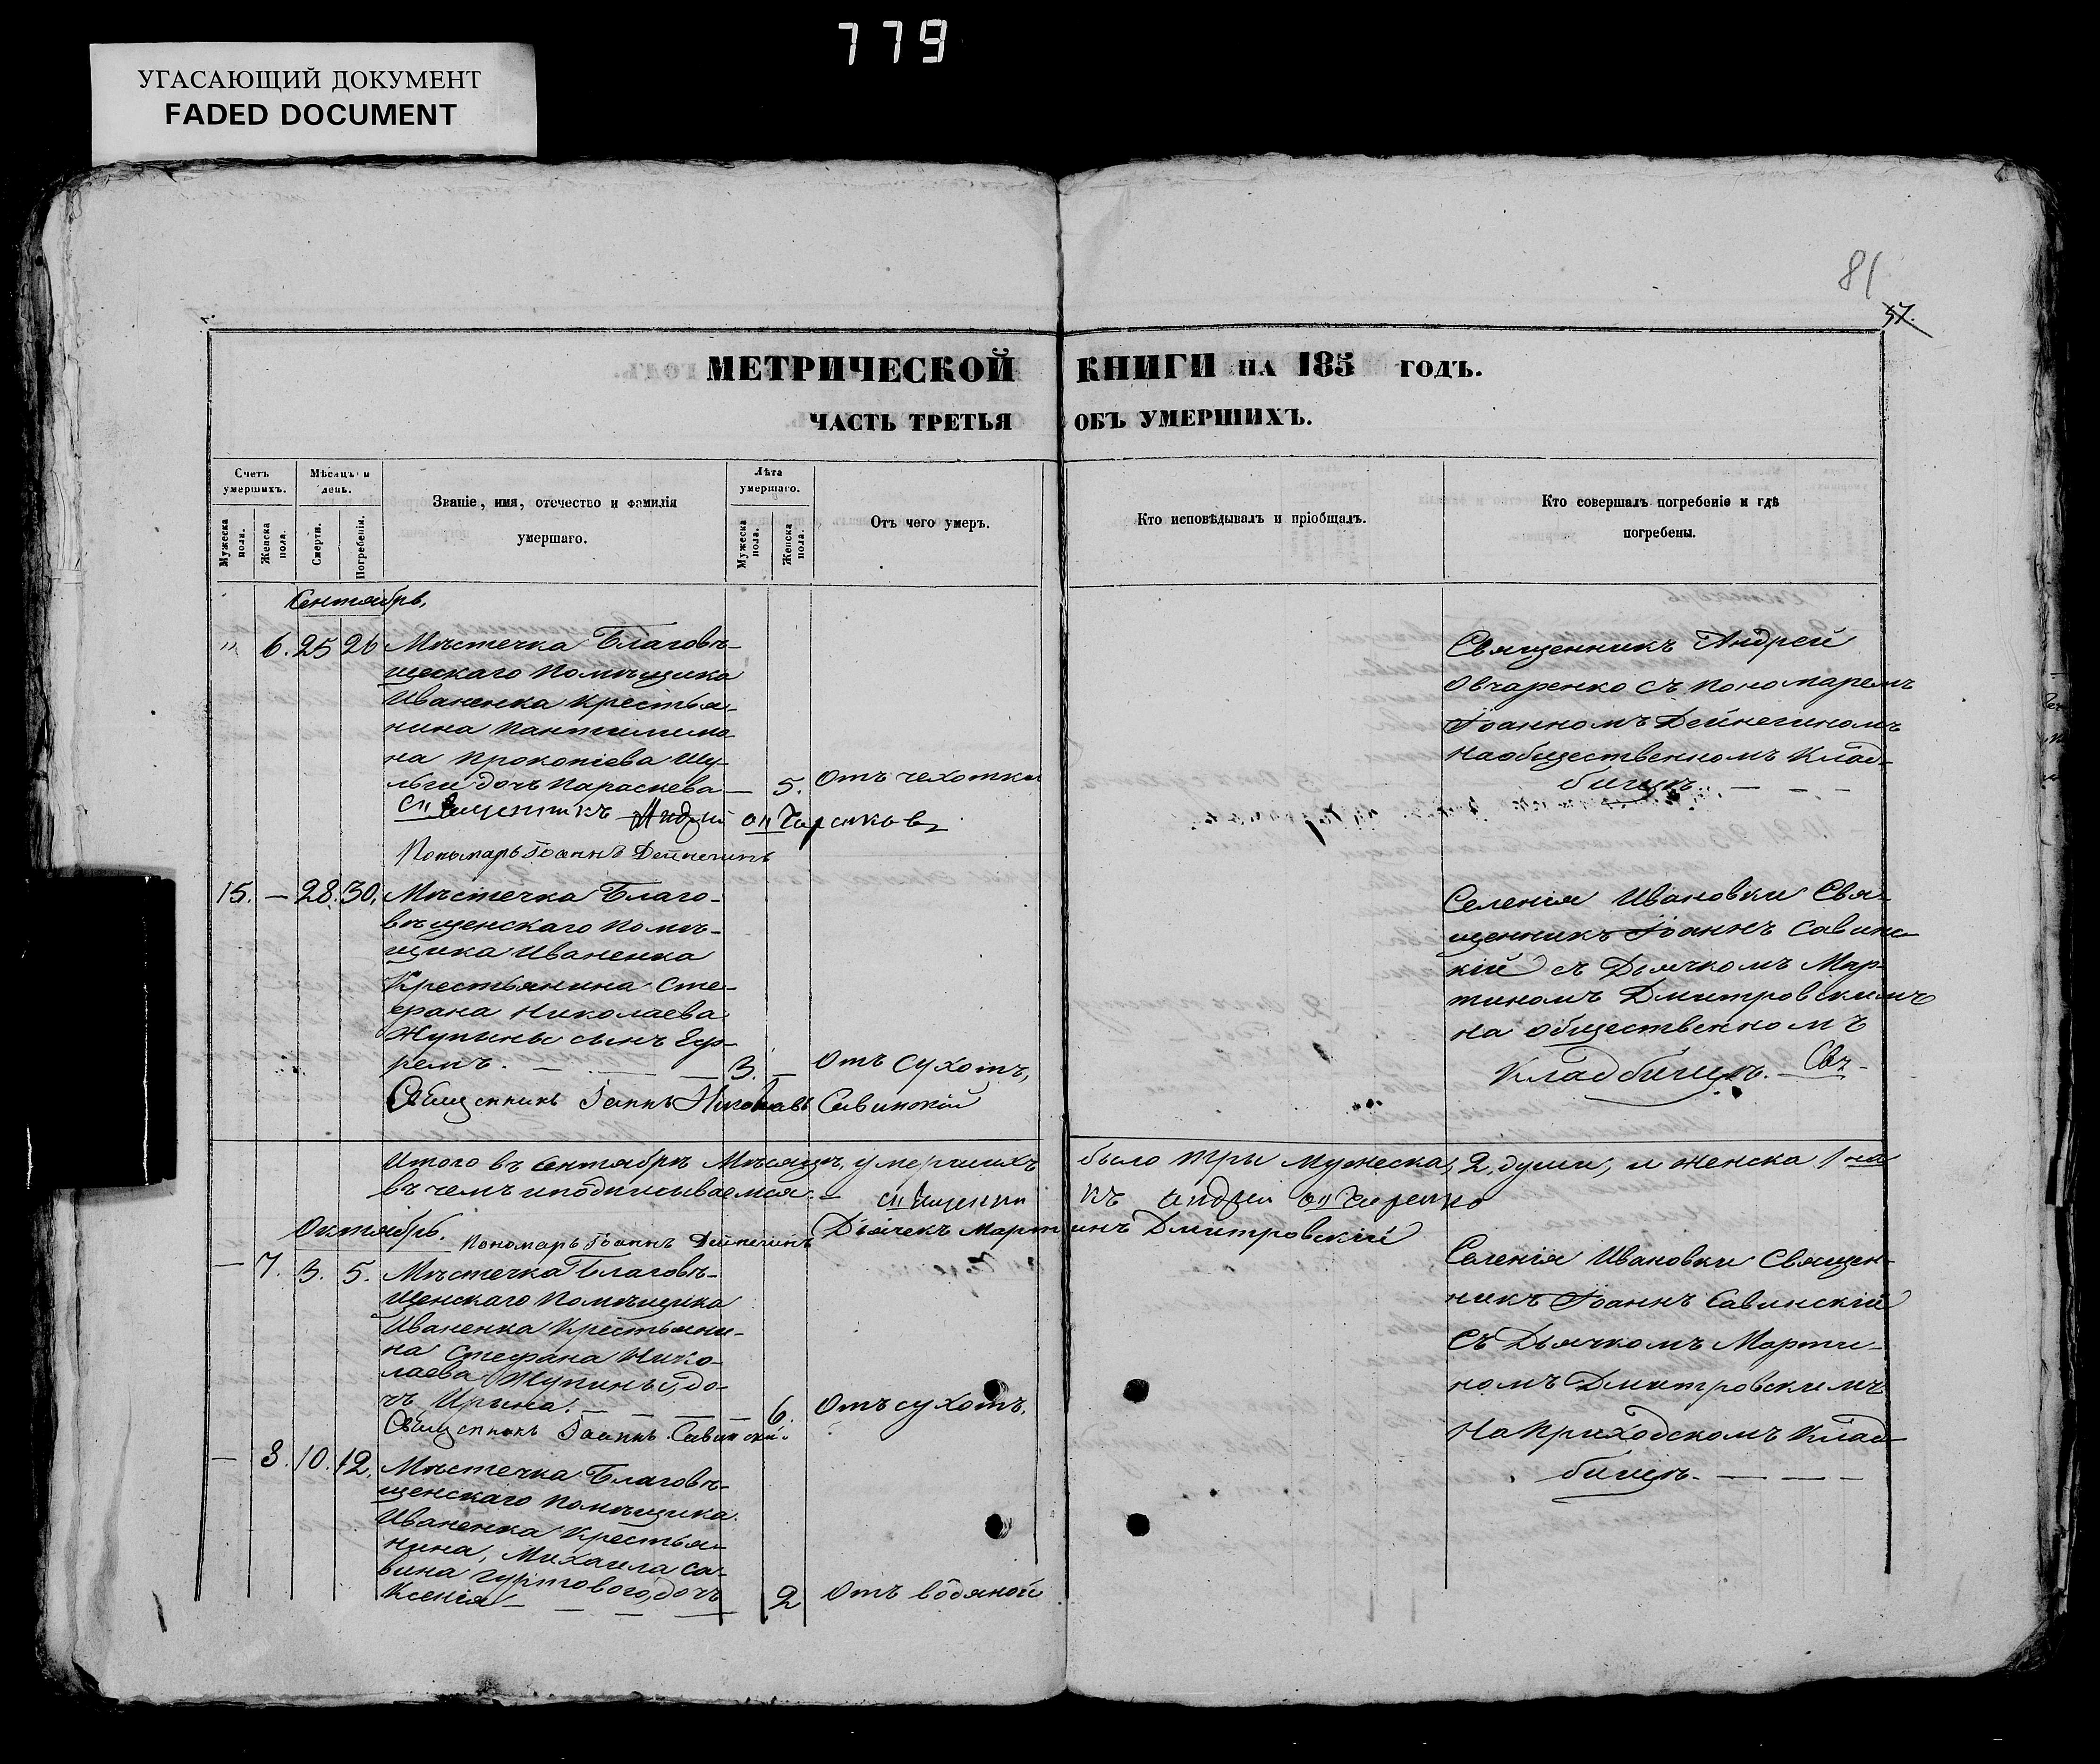 779
УГАСАЮЩИЙ ДОКУМЕНТ
FADED DOCUMENT
81
57.
МЕТРИЧЕСКОЙ КНИГИ НА 185 ГОДЪ.
ЧАСТЬ ТРЕТЬЯ ОБЪ УМЕРШИХЪ.
Счетъ умершихъ.
Мужеска пола.
Женска пола.
Мѣсяцъ и день.
Смерти.
Погребенія.
Званіе, имя, отечество и фамилія
умершаго.
Лѣта умершаго.
Мужеска пола.
Женска пола.
Отъ чего умеръ.
Кто исповѣдывалъ и пріобщалъ.
Кто совершалъ погребеніе и гдѣ
погребены.
Сентябрь,
" 6. 25 26 Мѣстечка Благовѣ-
щескаго Помѣщика
Иваненка Крестья-
нина Пантилимо
на Прокопіева Шу-
льги дочь Параскева — 5. Отъ чехотки
Священникъ Андрей Овчаренко
Пономарь Іоаннъ Дейнегинъ
Священникъ Андрей
Овчаренко съ пономаремъ
Іоанномъ Дейнегиномъ
на общественномъ Клад-
бищѣ. — — —
15. — 28. 30. Мѣстечка Благо-
вѣщенскаго Помѣ-
щика Иваненка
Крестьянина Сте-
фана Николаева
Жупины сынъ Еф-
ремъ. — — — 3. — Отъ сухотъ,
Священникъ Іоаннъ Савинскій
Селенія Ивановки Свя-
щенникъ Іоаннъ Савинс
кій съ Дьячкомъ Мар-
тиномъ Дмитровскимъ
на общественномъ
Кладбищѣ. —
Итого въ Сентябрѣ Мѣсяцѣ, умершихъ было три мужеска, 2, души, и женска 1 на
въ чемъ и подписываемся. — Священникъ Андрей Овчаренко
Октябрь. Пономарь Іоаннъ Дейнегинъ Дьячекъ Мартинъ Дмитровскій
— 7. 3. 5. Мѣстечка Благовѣ-
щенскаго Помѣщика
Иваненка Крестьяни-
на Стефана Нико-
лаева Жупины, до-
чь Ирина. — — — — 6. Отъ сухотъ.
Священникъ Іоаннъ Савинскій
Селенія Ивановки Священ-
никъ Іоаннъ Савинскій
съ Дьячкомъ Марти-
номъ Дмитровскимъ
на Приходскомъ Клад
бищѣ. — — —
— 8. 10. 12. Мѣстечка Благовѣ-
щенскаго Помѣщика
Иваненка Крестья-
нина, Михаила Са-
вина Гуртового, дочь
Ксенія — — — — 2 Отъ водяной